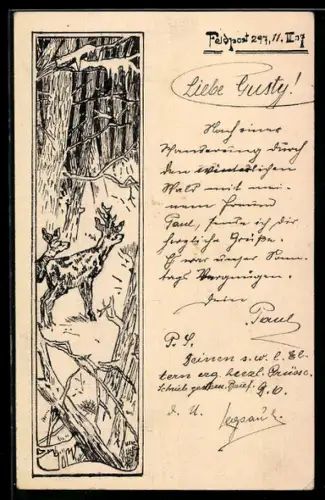 Feldpost 297, 11. II 17
Liebe Gusty!
Nach einer
Wanderung durch
den winterlichen
Wald mit mei-
nem Freund
Paul, sende ich dir
herzliche Grüße.
Es war unser Sonn-
tags Vergnügen.
dein
Paul
P. S.
Deinen s. w. l. El-
tern erg. herzl. Grüsse.
Schrieb gestern Brief.
d. U.